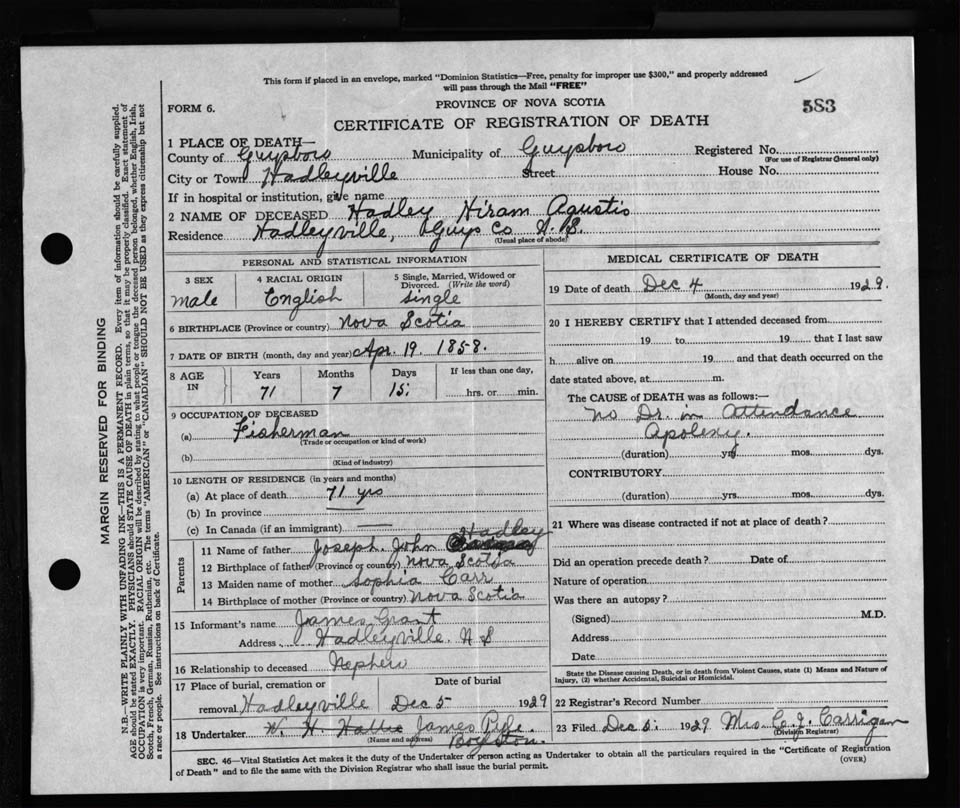 This form if placed in an envelope, marked "Dominion Statistics—Free, penalty for improper use $300," and properly addressed
will pass through the Mail "FREE"
FORM 6.
PROVINCE OF NOVA SCOTIA
583
CERTIFICATE OF REGISTRATION OF DEATH
1 PLACE OF DEATH—
County of Guysboro Municipality of Guysboro Registered No.
(For use of Registrar General only)
City or Town Hadleyville Street House No.
If in hospital or institution, give name
2 NAME OF DECEASED Hadley Hiram Agustis
Residence Hadleyville, Guys Co N.S.
(Usual place of abode)
PERSONAL AND STATISTICAL INFORMATION
3 SEX 4 RACIAL ORIGIN 5 Single, Married, Widowed or
Divorced. (Write the word)
male English single
6 BIRTHPLACE (Province or country) Nova Scotia
7 DATE OF BIRTH (month, day and year) Apr. 19. 1858.
8 AGE IN Years Months Days If less than one day,
71 7 15 hrs. or min.
9 OCCUPATION OF DECEASED
(a) Fisherman
(Trade or occupation or kind of work)
(b)
(Kind of industry)
10 LENGTH OF RESIDENCE (in years and months)
(a) At place of death 71 yrs
(b) In province
(c) In Canada (if an immigrant)
Parents
11 Name of father Joseph John Hadley
12 Birthplace of father (Province or country) Nova Scotia
13 Maiden name of mother Sophia Carr
14 Birthplace of mother (Province or country) Nova Scotia
15 Informant's name James Grant
Address Hadleyville N S
16 Relationship to deceased Nephew
17 Place of burial, cremation or Date of burial
removal Hadleyville Dec 5 1929
18 Undertaker W. H. James
(Name and address) Boylston.
MEDICAL CERTIFICATE OF DEATH
19 Date of death Dec 4 1929.
(Month, day and year)
20 I HEREBY CERTIFY that I attended deceased from
19 to 19 that I last saw
h alive on 19 and that death occurred on
date stated above, at m.
The CAUSE of DEATH was as follows:—
No Dr. in attendance
Apolexy.
(duration) yrs. mos. dys.
CONTRIBUTORY
(duration) yrs. mos. dys.
21 Where was disease contracted if not at place of death?
Did an operation precede death? Date of
Nature of operation
Was there an autopsy?
(Signed) M.D.
Address
Date
State the Disease causing Death, or in death from Violent Causes, state (1) Means and Nature of
Injury, (2) whether Accidental, Suicidal or Homicidal.
22 Registrar's Record Number
23 Filed Dec 5. 1929 Mrs C. J. Carrigan
(Division Registrar)
SEC. 46—Vital Statistics Act makes it the duty of the Undertaker or person acting as Undertaker to obtain all the particulars required in the "Certificate of Registration
of Death" and to file the same with the Division Registrar who shall issue the burial permit.
(OVER)
MARGIN RESERVED FOR BINDING
N.B.—WRITE PLAINLY WITH UNFADING INK—THIS IS A PERMANENT RECORD. Every item of information should be carefully supplied.
AGE should be stated EXACTLY. PHYSICIANS should STATE CAUSE OF DEATH in plain terms, so that it may be properly classified. Exact statement of
OCCUPATION is very important. RACIAL ORIGIN will be described by stating to what people or tongue the deceased person belonged, whether English, Irish,
Scotch, French, German, Russian, Ruthenian, etc. The terms "AMERICAN" or "CANADIAN" SHOULD NOT BE USED as they express citizenship but not
a race or people. See instructions on back of Certificate.